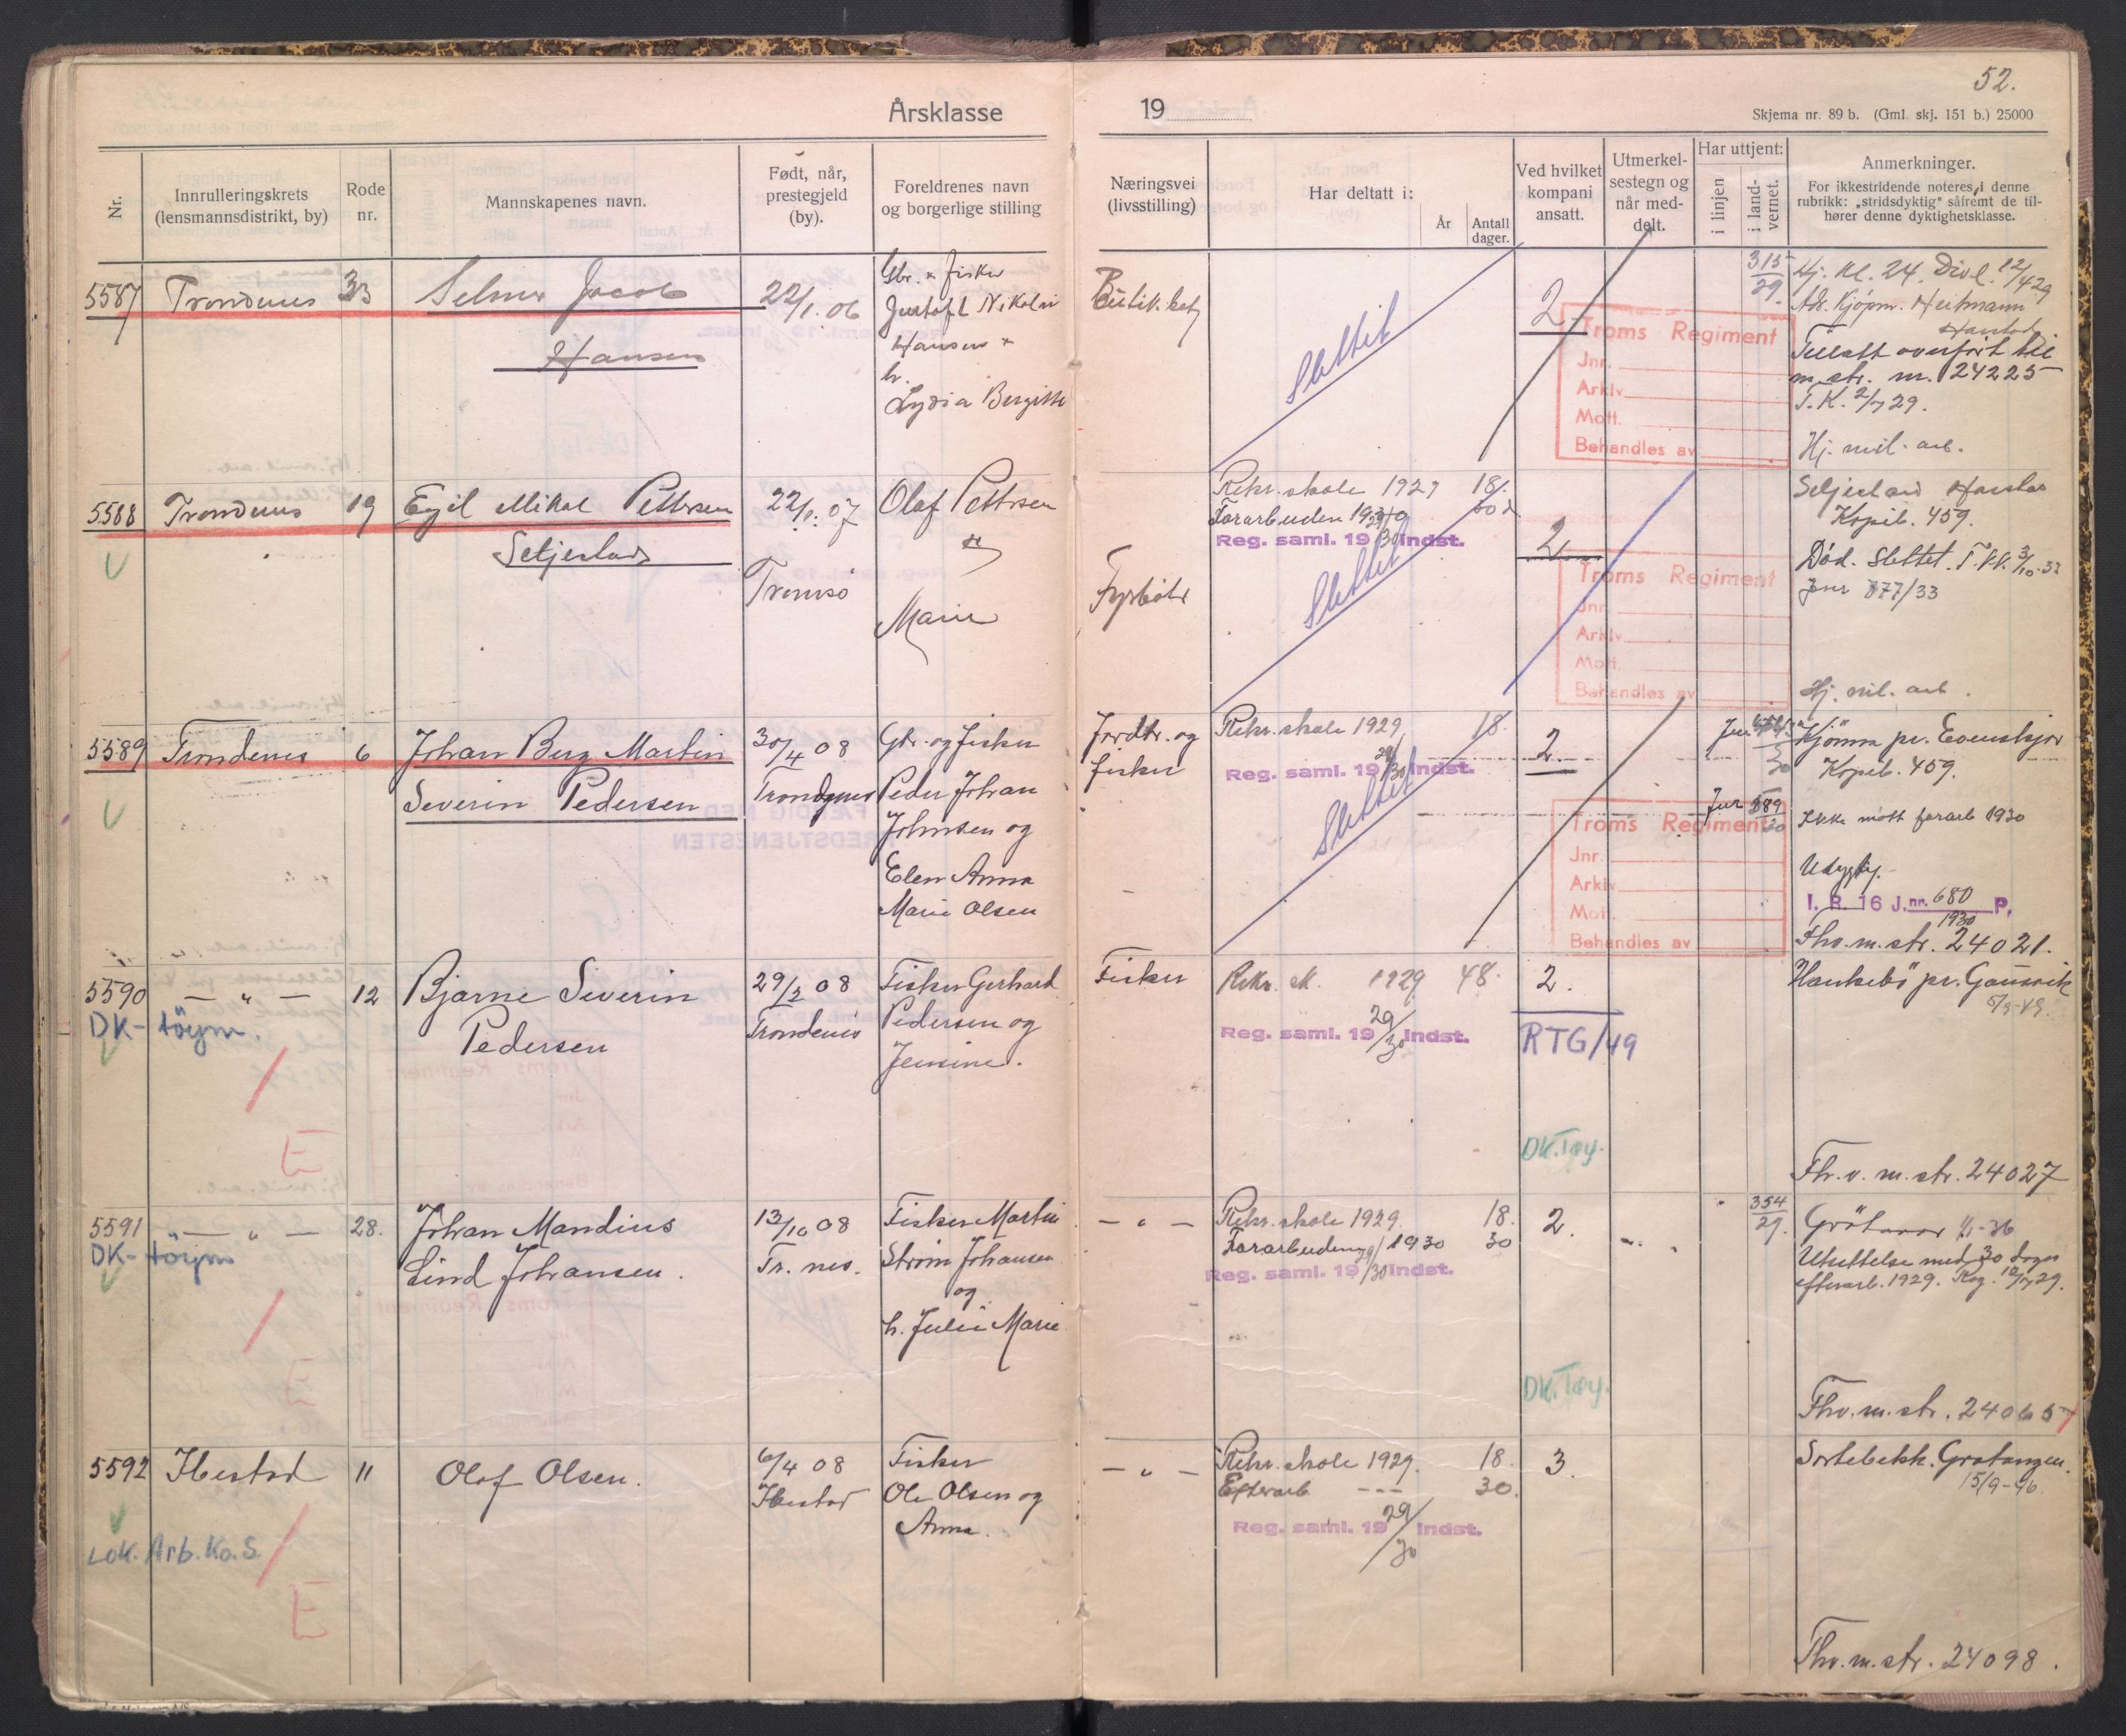 52.
Årsklasse 19
Skjema nr. 89 b. (Gml. skj. 151 b.) 25000
Nr.
Innrulleringskrets (lensmannsdistrikt, by)
Rode nr.
Mannskapenes navn.
Født, når, prestegjeld (by).
Foreldrenes navn og borgerlige stilling
Næringsvei (livsstilling)
Har deltatt i:
År
Antall dager.
Ved hvilket kompani ansatt.
Utmerkelsestegn og når meddelt.
Har uttjent:
i linjen
i landvernet.
Anmerkninger.
For ikkestridende noteres i denne rubrikk: „stridsdyktig" såfremt de tilhører denne dyktighetsklasse.
5587 Trondenes 33 Selmer Jacob
Hansen
22/1. 06
Gbr. & fisker
Gustaf L Nikolai
Hansen &
h.
Lydia Bergitte
Slettet
2
315
29.
Hj. Kl. 24. Div 12/4 29
Adr. Kjøpm. Heitmann
Harstad
Tillatt overført til
m. str. nr. 24225
T.K. 2/7 29.
Troms Regiment
Jnr.
Arkiv
Mott.
Behandles av
Hj. mil. arb.
5588 Trondenes 19 Egil Mikal Pettersen
Seljestad
22/1. 07
Tromsø
Olaf Pettersen
Marie
Fyrbøter
Rekr. skole 1929 18.
Forarbeiden 1930
Reg. saml. 19 29/30 indst.
Slettet
2
Seljestad Harstad
Kopib. 459.
Død. Slettet. T.KK. 3/10.33
Jnr 877/33
Troms Regiment
Jnr.
Arkiv
Mott.
Behandles av
Hj. mil. arb.
5589 Trondenes 6 Johan Berg Martin
Severin Pedersen
30/4 08
Trondenes
Gbr. og fisker
Peder Johan
Johnsen og
Elen Anna
Marie Olsen
Jordbr. og
fisker
Rekr. skole 1929 18.
Reg. saml. 19 29/30 indst.
Slettet
2.
Kjønna pr. Evenskjer
Kopib. 459.
Jnr 889
30
Ikke møtt forarb 1930
Udygtig.
I. R. 16 J.nr. 680 P.
1930
Fhv. m. str. 24021.
Troms Regiment
Jnr.
Arkiv
Mott.
Behandles av
5590 — „ — 12 Bjarne Severin
Pedersen
DK-tøym.
29/2 08
Trondenes
Fisker Gerhard
Pedersen og
Jensine.
Fisker
Rekr. sk. 1929 48.
Reg. saml. 19 29/30 indst.
2.
RTG/49
Haukebø pr. Gausvik
E
DK.Tøy.
Fh.v. m. str. 24027
5591 — „ — 28. Johan Mandius
Lind Johansen.
DK-tøym
13/10 08
Tr. nes.
Fisker Martin
Strøm Johansen
og
h. Julie Marie
— „ —
Rekr. skole 1929. 18.
Forarbeiden 1930 30
Reg. saml. 19 29/30 indst.
2.
354
29.
Utsettelse med 30 dager
efterarb. 1929. Reg. 12/7 29.
E
DK.Tøy.
Fhv. m. str. 24065
5592 Ibestad 11 Olaf Olsen.
6/4 08
Ibestad
Fisker
Ole Olsen og
Anna.
— „ —
Rekr. skole 1929. 18.
Efterarb - - - 30.
Reg. saml. 19 29/30 indst.
3.
Sortebekk. Gratangen.
15/9-46.
Lok. Arb. Ko. S.
E
Fhv. m. str. 24098.